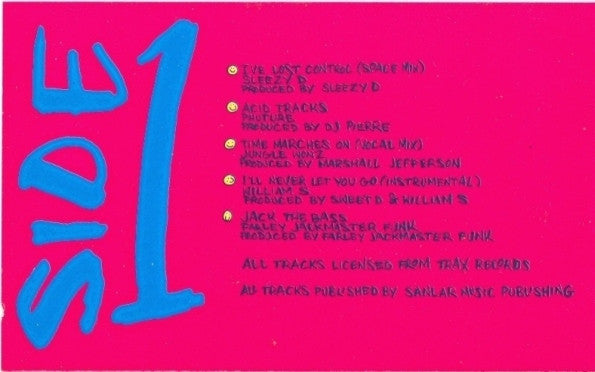 SIDE 1
I'VE LOST CONTROL (SPACE MIX)
SLEEZY D
PRODUCED BY SLEEZY D
ACID TRACKS
PHUTURE
PRODUCED BY DJ PIERRE
TIME MARCHES ON (VOCAL MIX)
JUNGLE WONZ
PRODUCED BY MARSHALL JEFFERSON
I'LL NEVER LET YOU GO (INSTRUMENTAL)
WILLIAM S
PRODUCED BY SWEET D & WILLIAM S
JACK THE BASS
FARLEY JACKMASTER FUNK
PRODUCED BY FARLEY JACKMASTER FUNK
ALL TRACKS LICENSED FROM TRAX RECORDS
ALL TRACKS PUBLISHED BY SANLAR MUSIC PUBLISHING